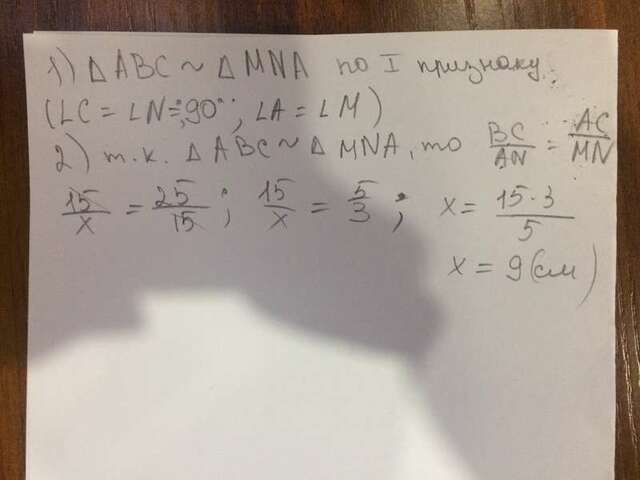 1) △ABC ~ △MNA по I признаку
(∠C = ∠N = 90°; ∠A = ∠M)
2) т.к. △ABC ~ △MNA, то BC/AN = AC/MN
15/x = 25/15; 15/x = 5/3; x = 15·3/5
x = 9(см)